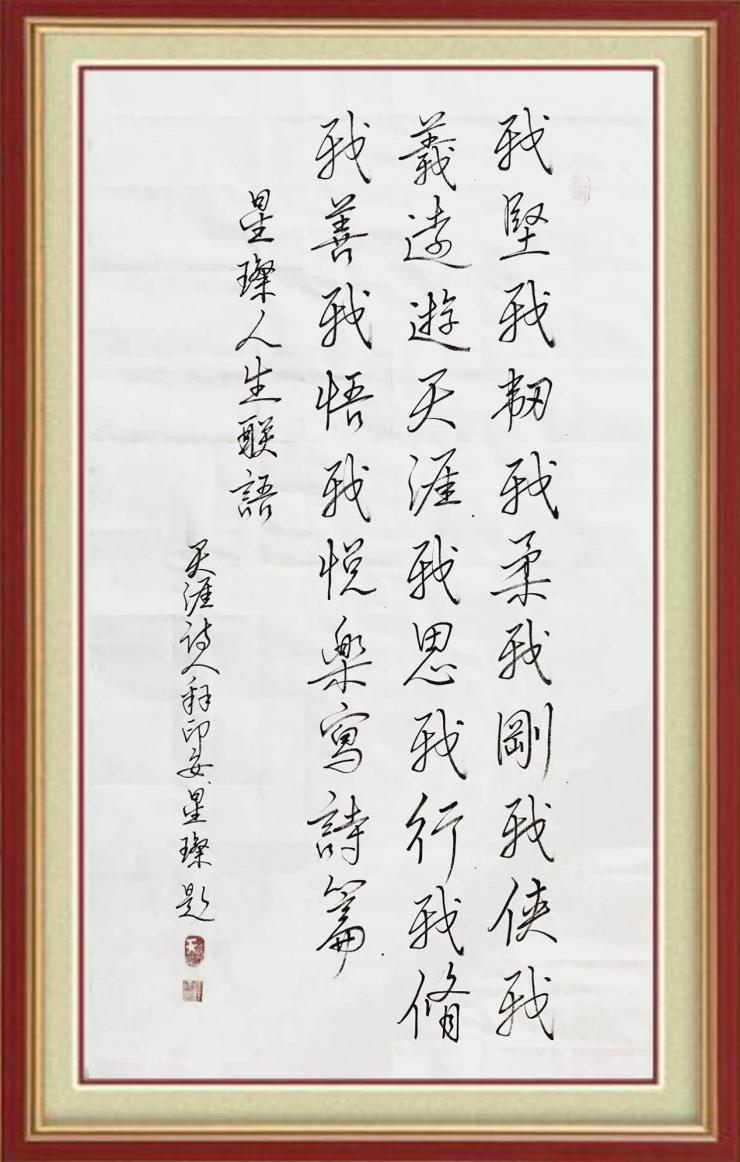 我堅我韌我柔我剛我俠我
義遠遊天涯我思我行我脩
我善我悟我悦樂寫詩篇
星璨人生联語
天涯诗人釋印安星璨题